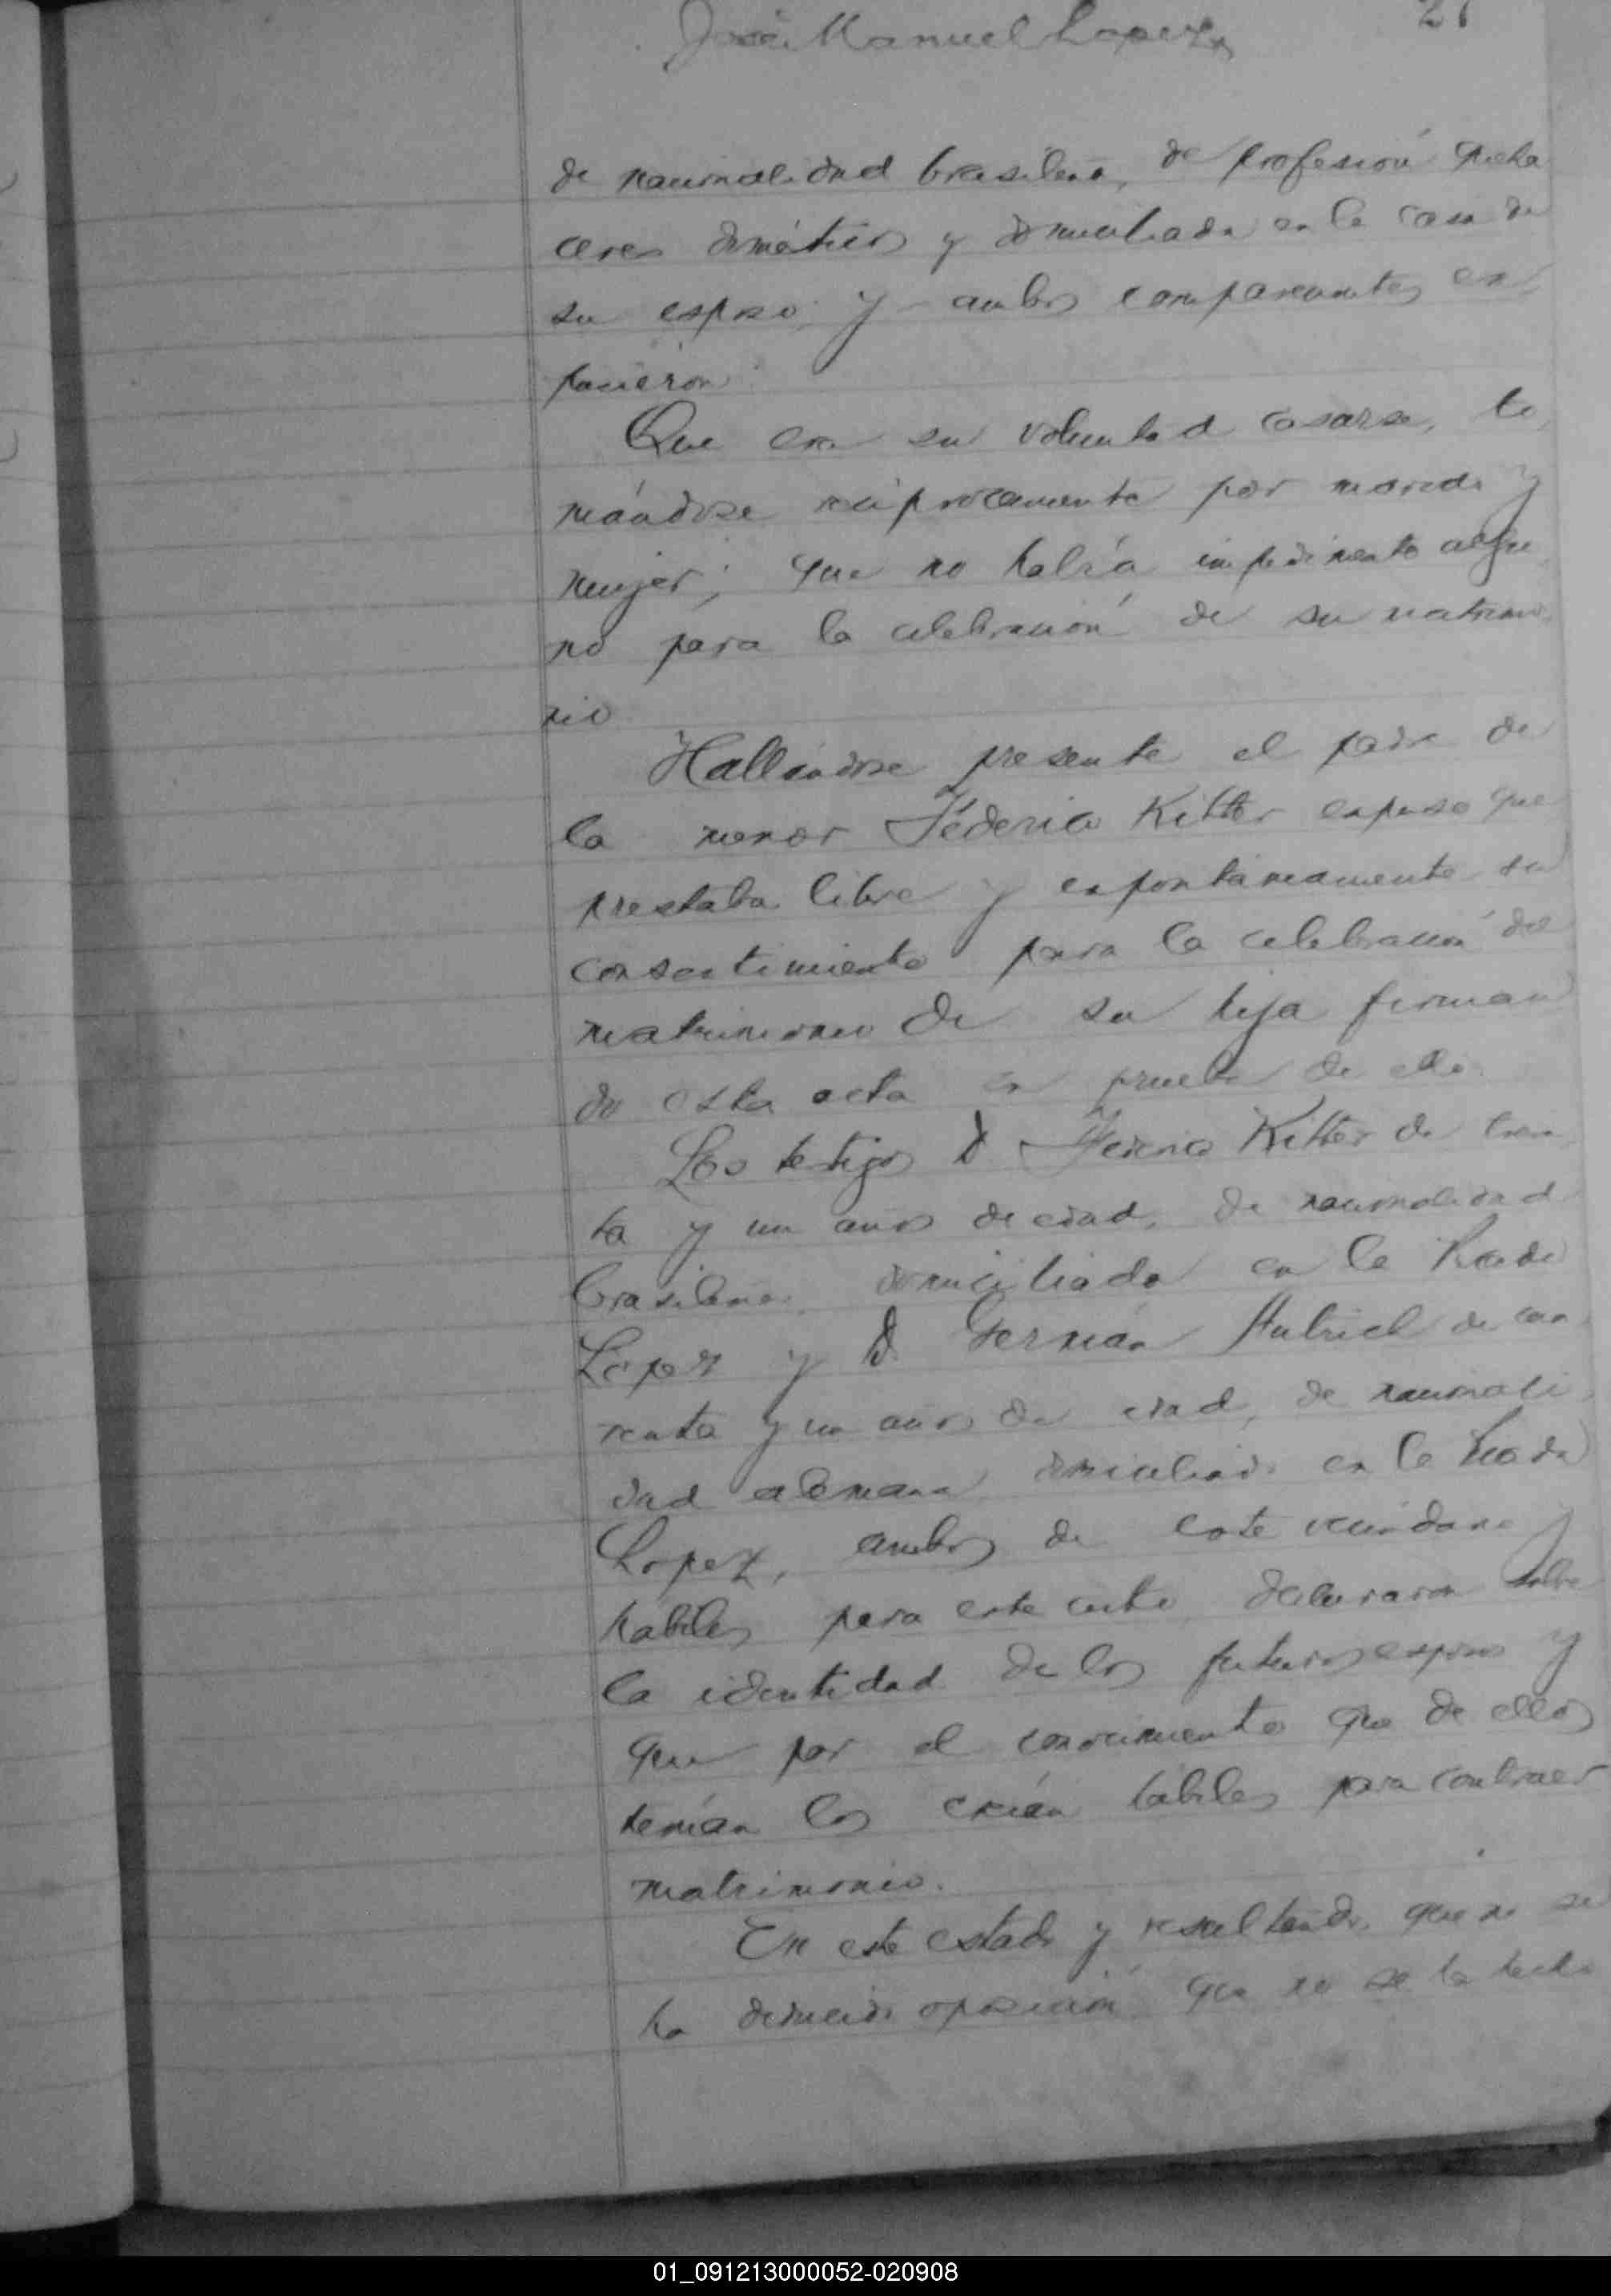 José Manuel Lopez
21
de nacionalidad brasilera, de profesión queha
ceres doméstico y domiciliada en la casa de
su esposo; y ambos comparecientes ex
pucieron:
Que era su voluntad casarse, to
mándose reciprocamente por marido y
mujer; que no había impedimento algu
no para la celebración de su matrimo
nio
Hallándose presente el padre de
la menor Féderico Kitter expuso que
prestaba libre y expontáneamente su
consentimiento para la celebración del
matrimonio de su hija firman
do esta acta en prueba de ello.
Los testigos D Federico Kitter de
ta y un años de edad, de nacionalidad
brasilera domiciliado en la
López y D. Germán de cua
renta y un años de edad, de nacionali
dad alemana domiciliado en la
Lopez, ambos de este vecindario y
hábiles para este acto, declararon sobre
la identidad de los futuros esposos y
que por el conocimiento que de ellos
tenían los creían hábiles para contraer
matrimonio.
En este estado y resultando que no se
ha deducido oposición que no se ha hecho
01_091213000052-020908